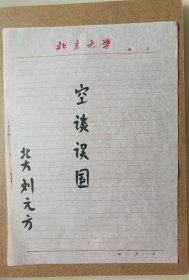 北京大学
空谈误国
北大 刘元方